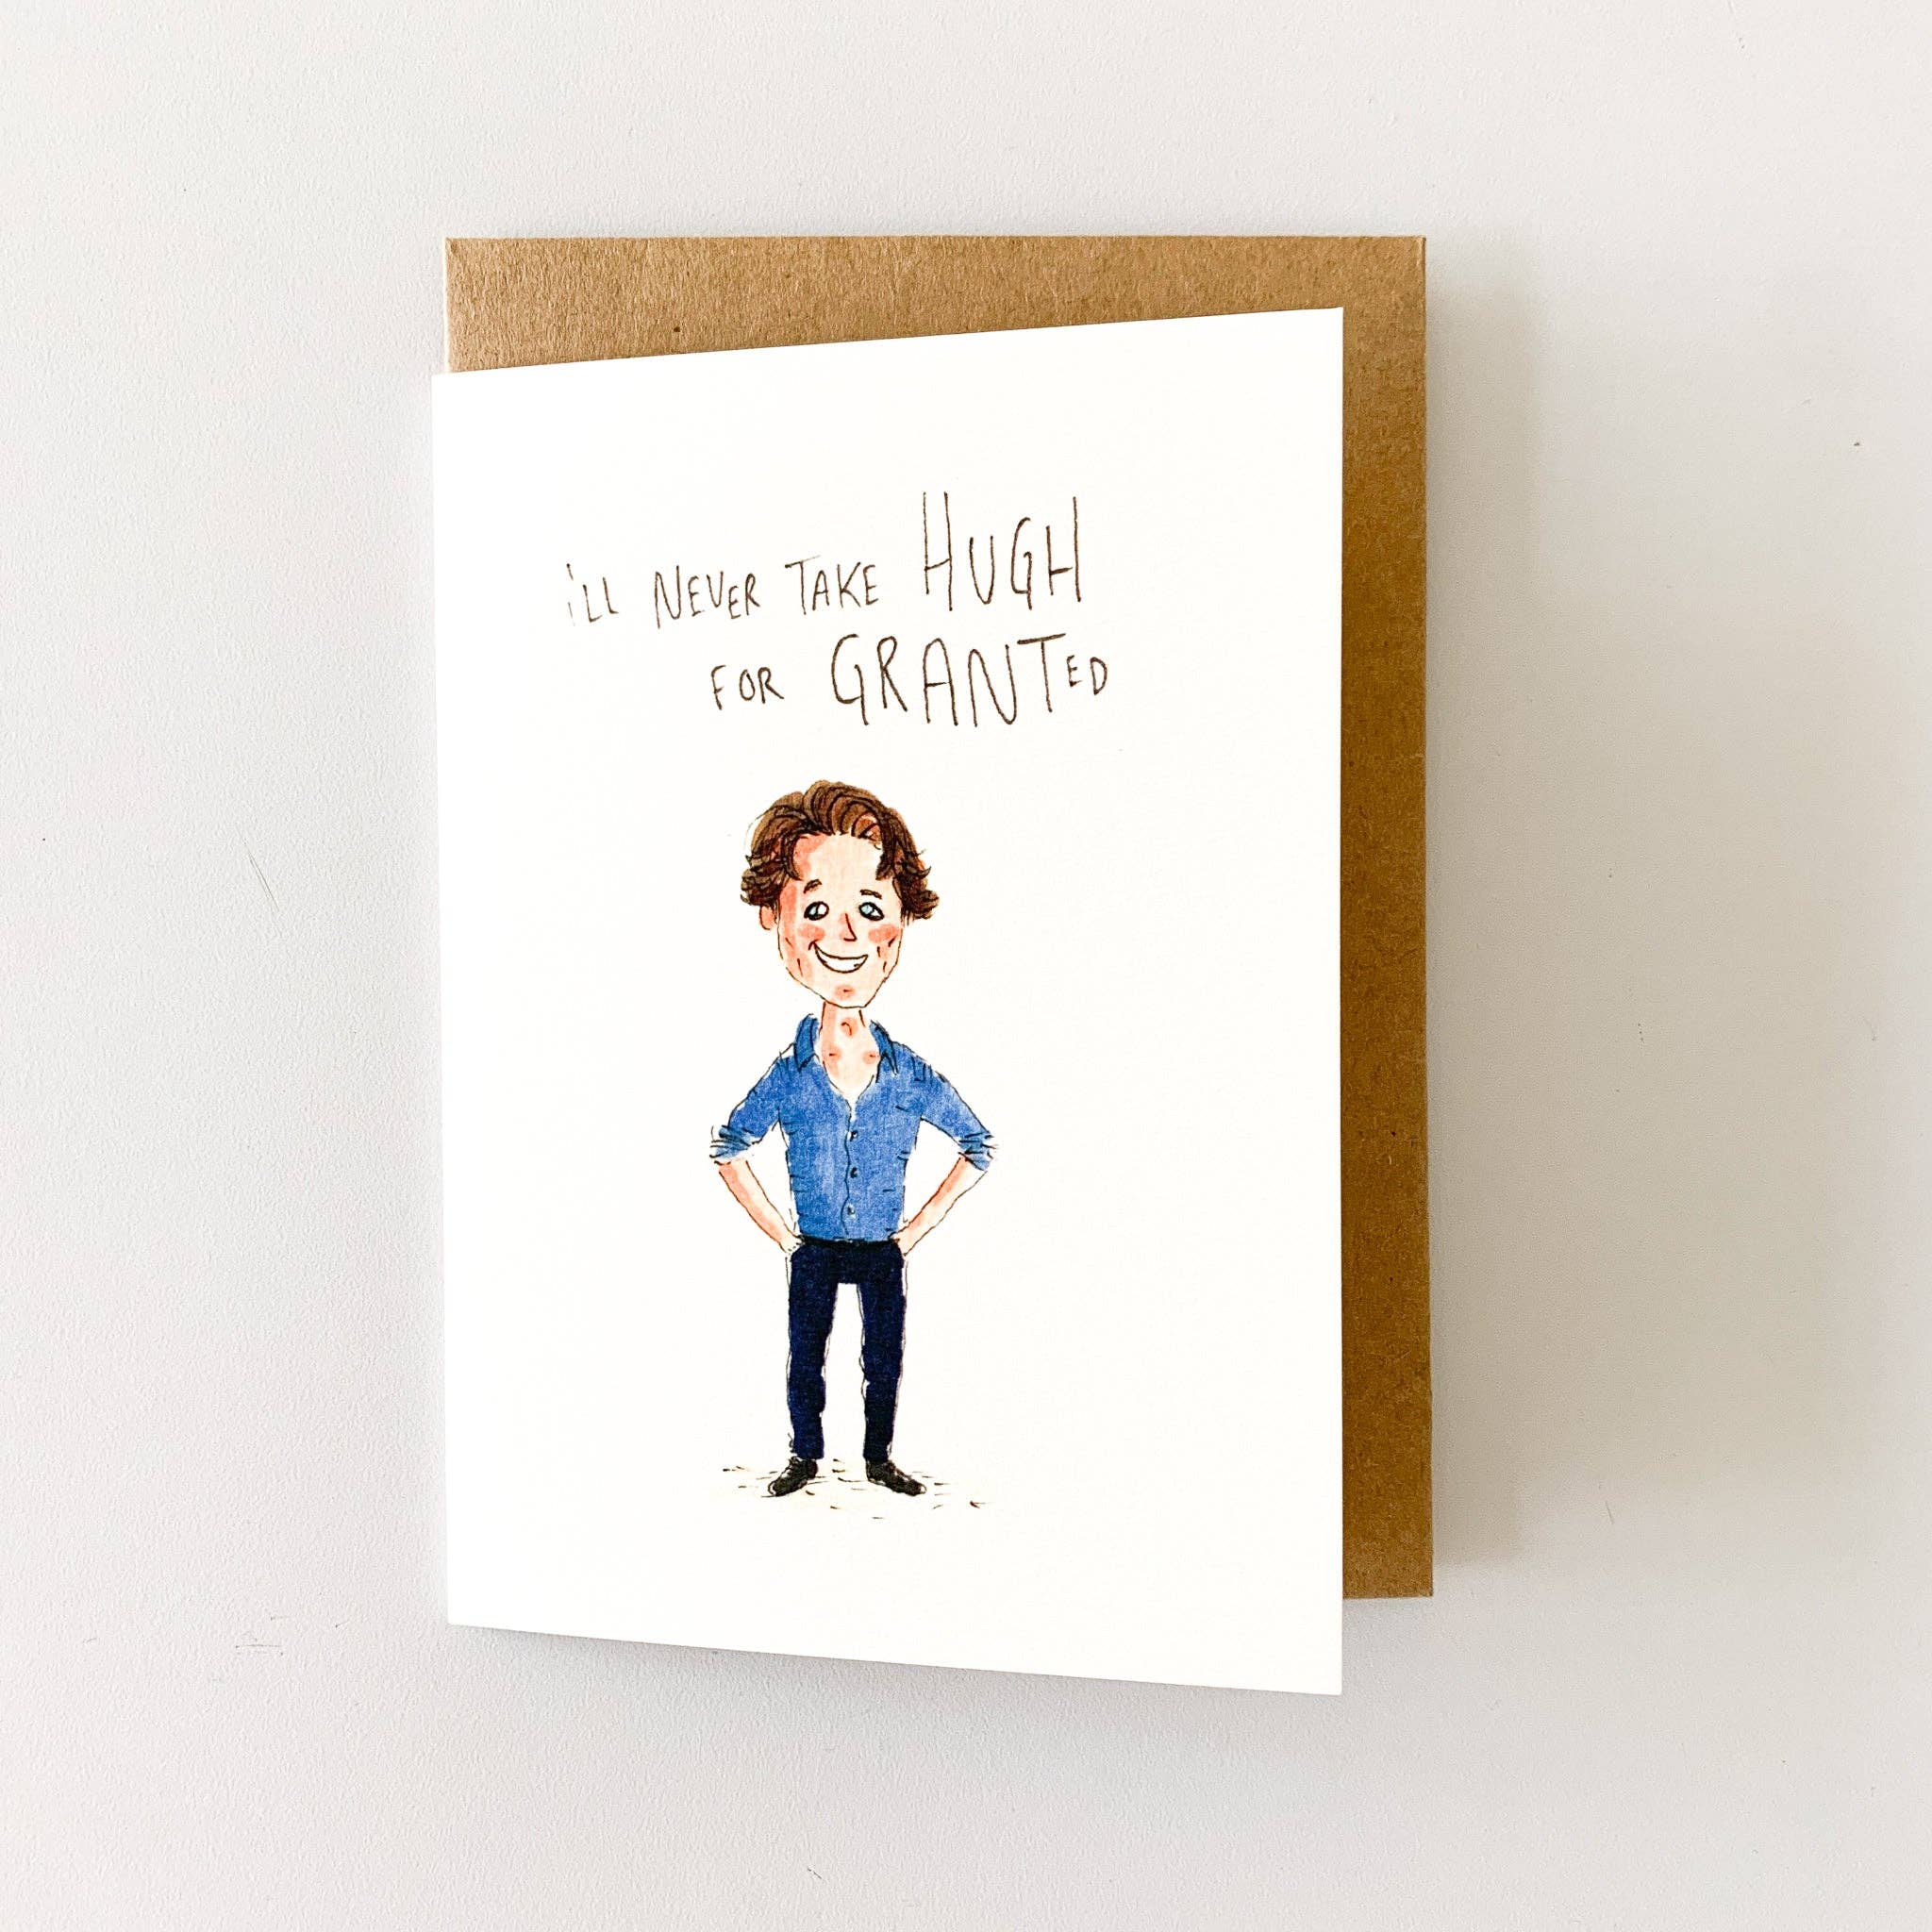 i'll NEVER TAKE HUGH
FOR GRANTED